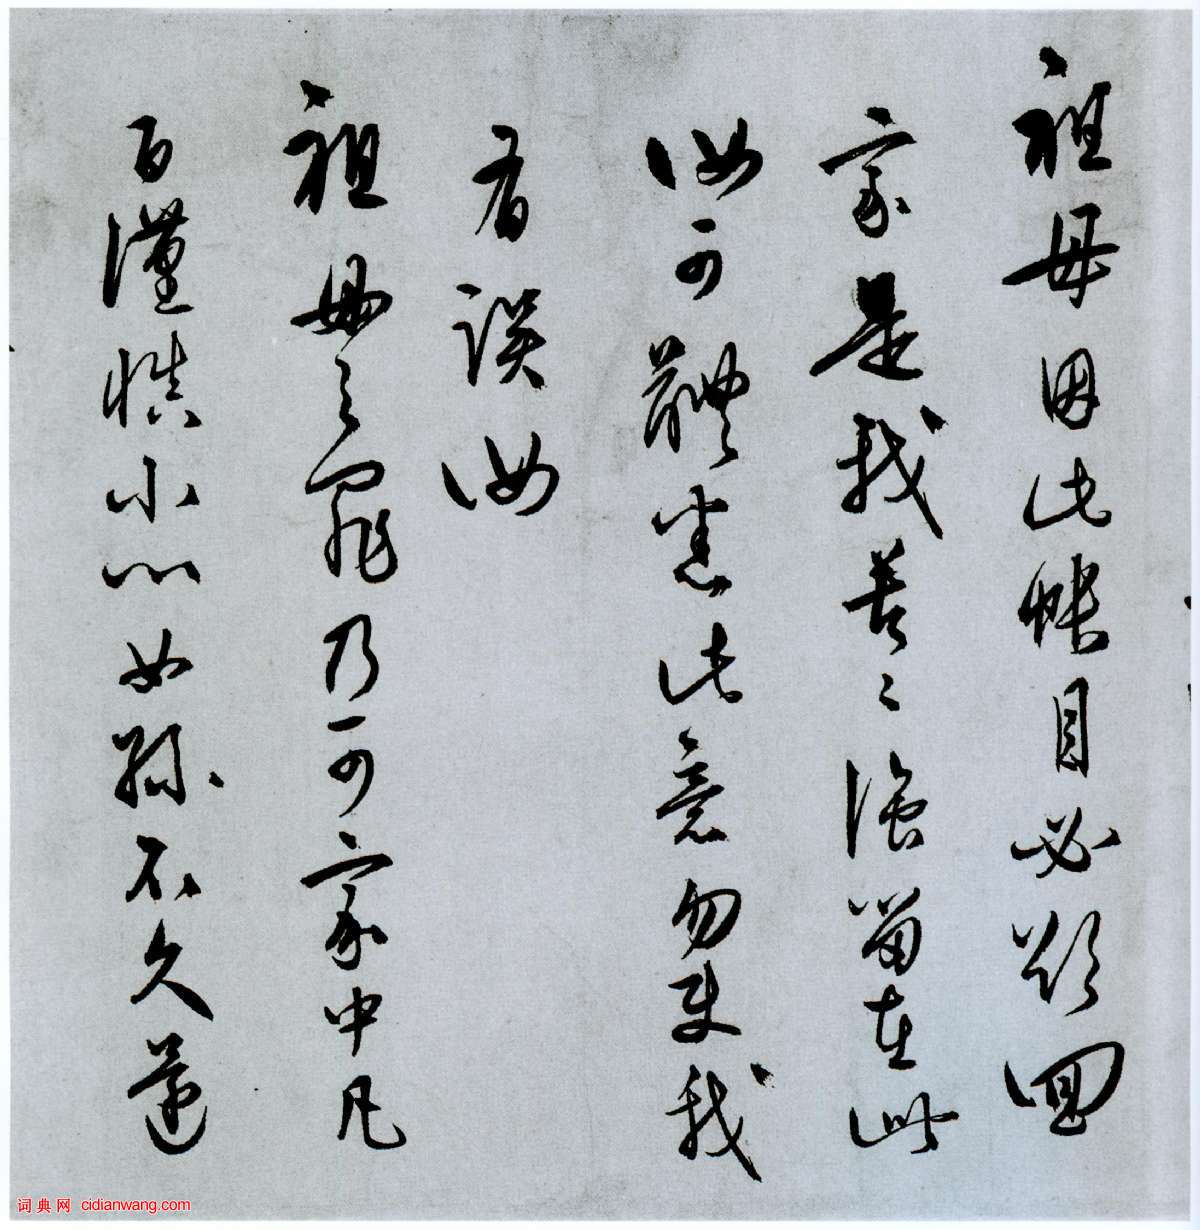 祖母因此帳目必欲回
家是我苦〻強留在此
汝可體悉此意勿使我
有誤汝
祖母之罪乃可家中凡
百謹慎小心女孫不久
词典网 cidianwang.com